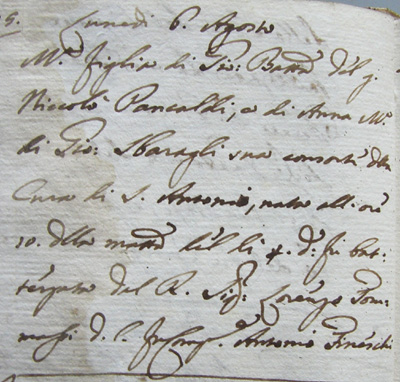 5. Lunedi 6. Agosto
M.ª figlia di Gio: Batta del q.
Niccolò Pancaldi, e di Anna M.ª
di Gio: Sbaragli sua consorte della
Cura di S. Antonio, nata all' ore
10. della matt.ª del li d.º fu bat:
tezzata dal R. Sig.r Lorenzo Tom:
masi d. C. Comp. Antonio Fineschi